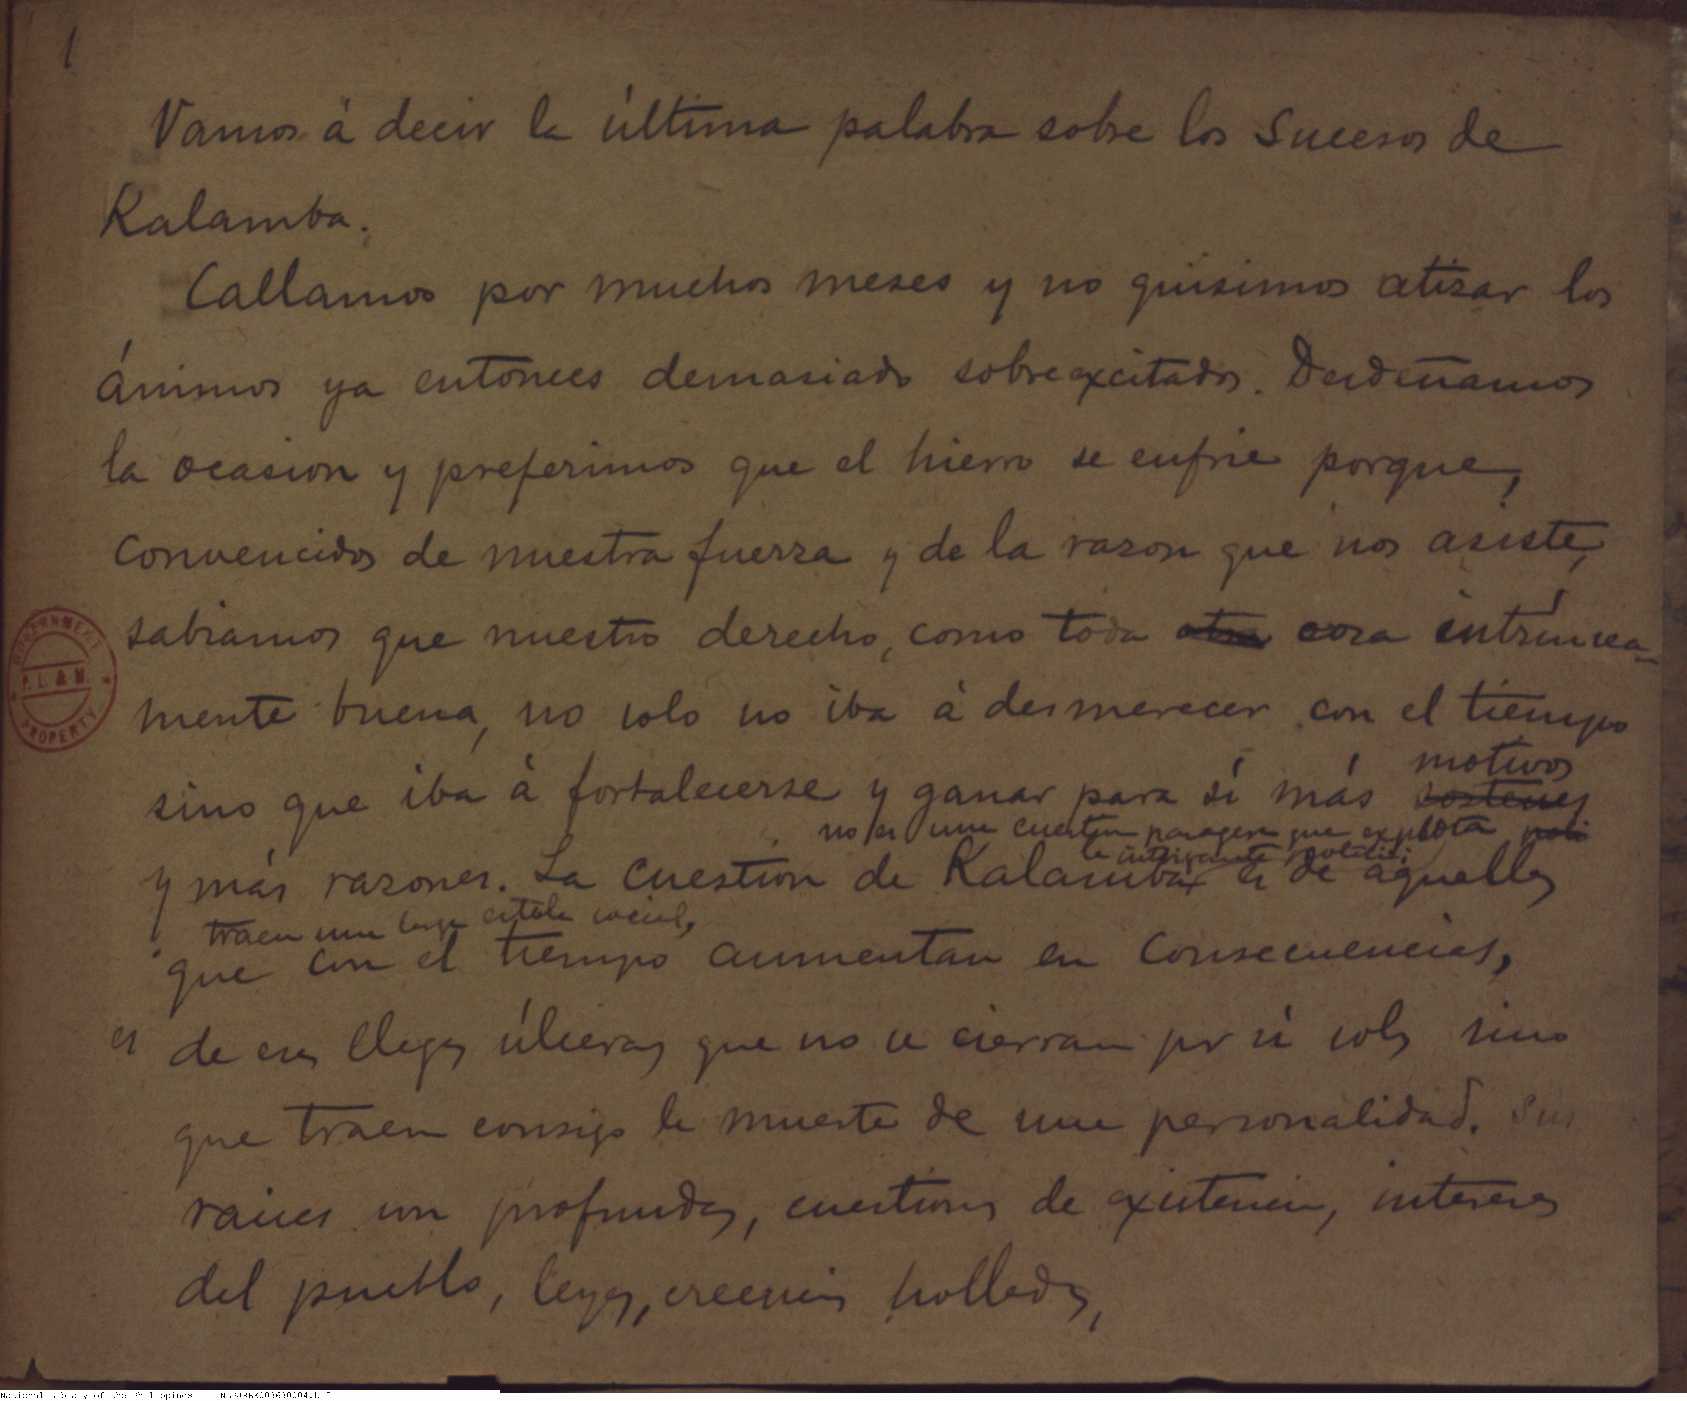 1
Vamos á decir la última palabra sobre los sucesos de
Kalamba.
Callamos por muchos meses y no quisimos atizar los
ánimos ya entonces demasiado sobreexcitados. Desdeñamos
la ocasion y preferimos que el hierro se enfrie porque,
convencidos de nuestra fuerza y de la razon que nos asiste,
sabiamos que nuestro derecho, como toda otra cosa intrínsea-
mente buena, no solo no iba á desmerecer con el tiempo
motivos
sino que iba á fortalecerse y ganar para sí más sostenes
no es una cuestion pasagera que explota
la intrigante politici
y más razones. La cuestion de Kalamba es de aquellas
traen una larga estela social,
que con el tiempo aumentan en consecuencias,
es de esas llagas úlceras que no se cierran por sí solas sino
que traen consigo la muerte de una personalidad. Sus
raices son profundas, cuestiones de existencia, intereses
del pueblo, leyes, creencias holladas,
GOVERNMENT
P. L. & M.
PROPERTY
National Library of the Philippines